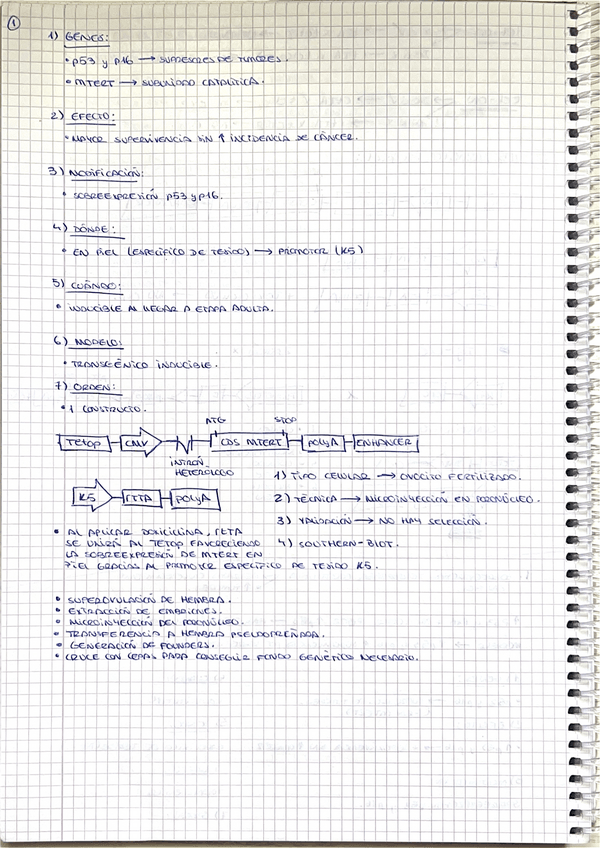 1
1) GENES:
• p53 y p16 → SUPRESORES DE TUMORES.
• MTERT → SUBUNIDAD CATALÍTICA.
2) EFECTO:
• MAYOR SUPERVIVENCIA SIN ↑ INCIDENCIA DE CÁNCER.
3) MODIFICACIÓN:
• SOBREEXPRESIÓN p53 y p16.
4) DÓNDE:
• EN PIEL (ESPECÍFICO DE TEJIDO) → PROMOTOR (K5)
5) CUÁNDO:
• INDUCIBLE AL LLEGAR A ETAPA ADULTA.
6) MODELO:
• TRANSGÉNICO INDUCIBLE.
7) ORDEN:
• 1 CONSTRUCTO.
ATG STOP
TetOP CMV CDS MTERT polyA ENHANCER
INTRÓN
HETERÓLOGO
K5 rtTA polyA
1) TIPO CELULAR → OVOCITO FERTILIZADO.
2) TÉCNICA → MICROINYECCIÓN EN PORONÚCLEO.
3) VALIDACIÓN → NO HAY SELECCIÓN.
4) SOUTHERN-BLOT.
• AL APLICAR DOXICILINA, rtTA
SE UNIRÁ AL TETOP FAVORECIENDO
LA SOBREEXPRESIÓN DE MTERT EN
PIEL GRACIAS AL PROMOTOR ESPECÍFICO DE TEJIDO K5.
• SUPEROVULACIÓN DE HEMBRA.
• EXTRACCIÓN DE EMBRIONES.
• MICROINYECCIÓN DEL PORONÚCLEO.
• TRANSFERENCIA A HEMBRA PSEUDOPREÑADA.
• GENERACIÓN DE FOUNDERS.
• CRUCE CON CEPAS PARA CONSEGUIR FONDO GENÉTICO NECESARIO.